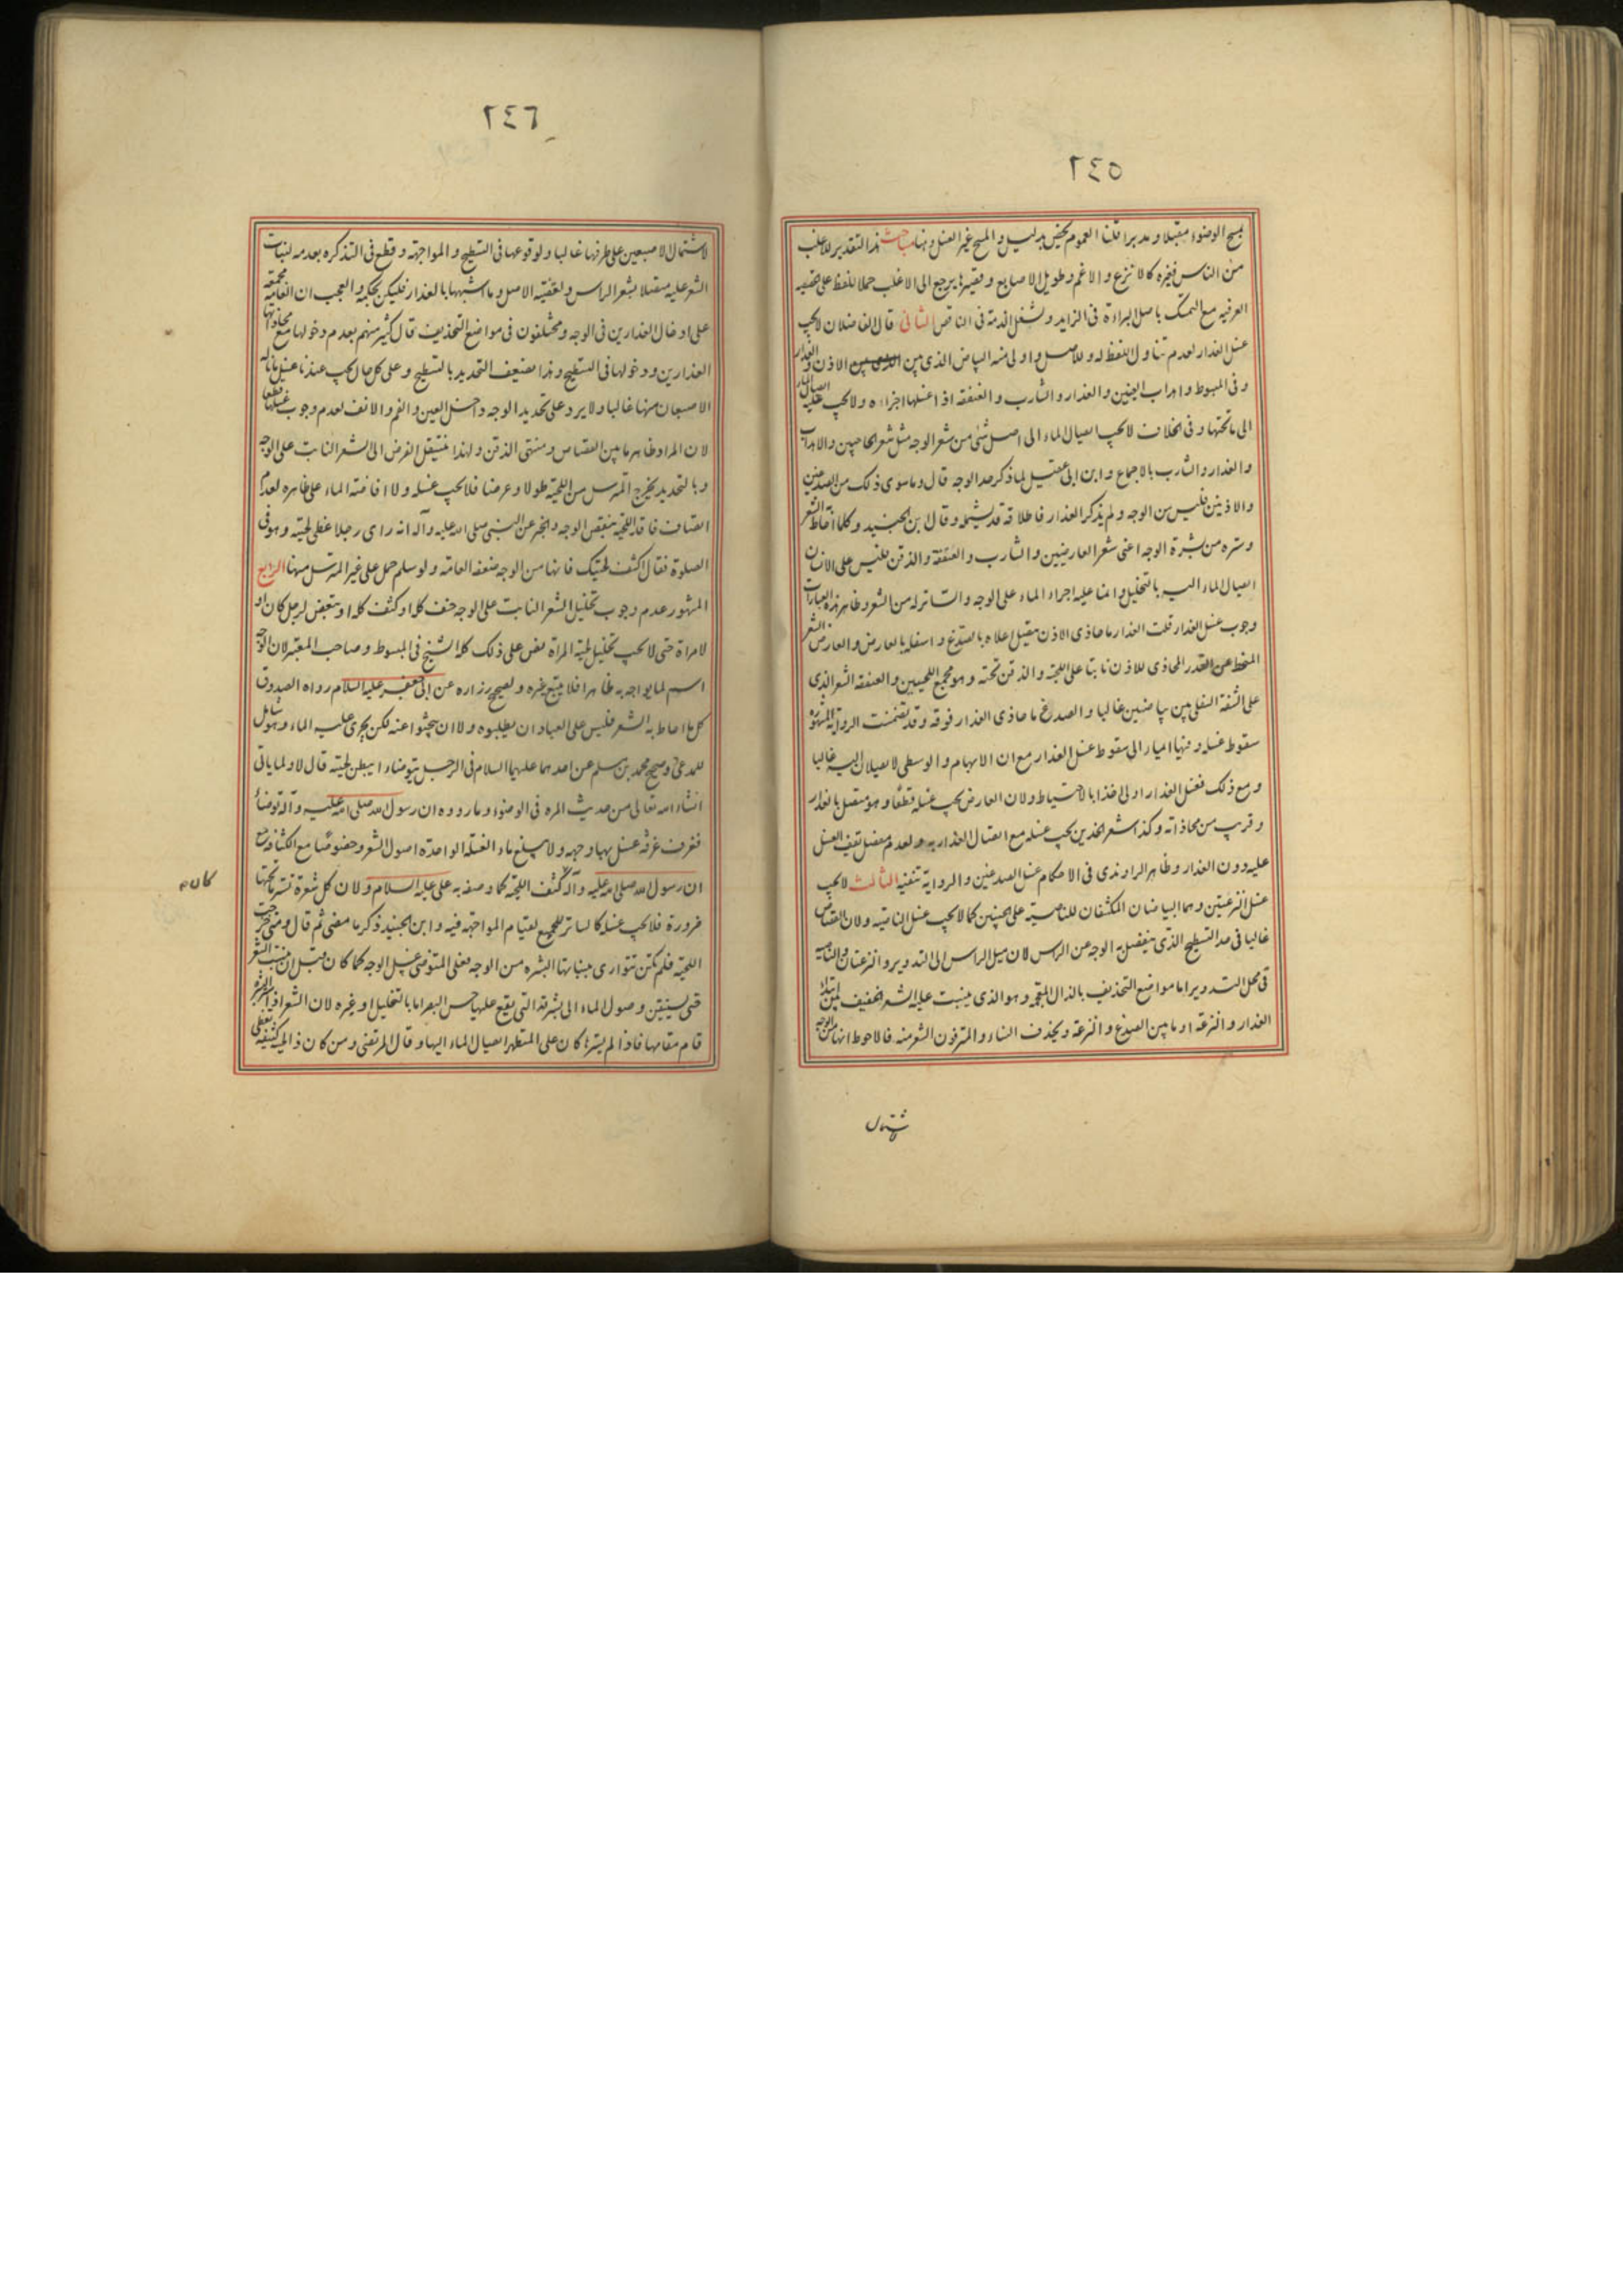 ٢٤٥
بمسح الوضوء مقبلا ومدبرا قلنا العموم يخص بدليل والمسح غير الغسل وهنا مباحث هذا التقدير للاغلب
من الناس فغيره كالانزع والاغم وطويل الاصابع وقصيرها يرجع الى الاغلب حملا للفظ على الحقيقة
العرفيه مع التمسك باصل البراءة فى الزايد وشغل الذمة فى الناقص الثانى قال الفاضلان لا يجب
غسل العذار لعدم تناول اللفظ له وللاصل واولى منه البياض الذى بين الاذن والعذار
وفى المبسوط واهداب العينين والعذار والشارب والعنفقة اذا غسلها اجزاه ولا يجب عليه ايصال الماء
الى ما تحتها وفى الخلاف لا يجب ايصال الماء الى اصل شئ من شعر الوجه مثل شعر الحاجبين والاهداب
والعذار والشارب بالاجماع وابن ابى عقيل لما ذكر حد الوجه قال وما سوى ذلك من الصدغين
والاذنين فليس من الوجه ولم يذكر العذار فاطلاقه قد يشمله وقال ابن الجنيد وكلما احاط الشعر
وستره من بشرة الوجه اعنى شعر العارضين والشارب والعنفقة والذقن فليس على الانسان
ايصال الماء اليه بالتخليل وانما عليه اجراء الماء على الوجه والساتر له من الشعر وظاهر هذه العبارات
وجوب غسل العذار قلت العذار ما حاذى الاذن متصل اعلاه بالصدغ واسفله بالعارض والعارض الشعر
المنحط عن القدر المحاذى للاذن نابتا على اللحية والذقن تحته وهو مجمع اللحيين والعنفقه الشعر الذى
على الشفة السفلى بين بياضين غالبا والصدغ ما حاذى العذار فوقه وقد تضمنت الرواية المشهورة
سقوط غسله وفيها ايماء الى سقوط غسل العذار مع ان الابهام والوسطى لا يصلان اليه غالبا
ومع ذلك فغسل العذار اولى اخذا بالاحتياط ولان العارض يجب غسله قطعا وهو متصل بالعذار
وقريب من محاذاته وكذا شعر الخدين يجب غسله مع اتصال العذار به ولعدم مفصل يقف الغسل
عليه دون العذار وظاهر الراوندى فى الاحكام غسل الصدغين والرواية تنفيه الثالث لا يجب
غسل النزعتين وهما البياضان المكتنفان للناصية على الجبينين كما لا يجب غسل الناصية ولان القصاص
غالبا فى حد التسطيح الذى ينفصل به الوجه عن الراس لان ميل الراس الى التدوير والنزعتان والناصية
فى محل التدوير اما مواضع التحذيف بالذال المعجمه وهو الذى ينبت عليه الشعر الخفيف بين ابتداء
العذار والنزعة او ما بين الصدغ والنزعة ويحذف النساء والمترفون الشعر منه فالاحوط انها من الوجه
لاشتمال
٢٤٦
لاشتمال الاصبعين على طرفها غالبا ولوقوعها فى التسطيح والمواجهة وقطع فى التذكره بعدمه لنبات
الشعر عليه متصلا بشعر الراس ولقضية الاصل وما اشبهها بالعذار فليكن بحكمه والعجب ان العامة مجمعة
على ادخال العذارين فى الوجه ومختلفون فى مواضع التحذيف قال كثير منهم بعدم دخولها مع محاذاتها
العذارين ودخولها فى التسطيح وهذا يضعف التحديد بالتسطيح وعلى كل حال يجب عندنا غسل ما ناله
الاصبعان منها غالبا ولا يرد على تحديد الوجه داخل العين والفم والانف لعدم وجوب غسلها قطعا
لان المراد ظاهر ما بين القصاص ومنتهى الذقن ولهذا ينتقل الفرض الى الشعر النابت على الوجه
وبالتحديد يخرج المسترسل من اللحية طولا وعرضا فلا يجب غسله ولا افاضة الماء على ظاهره لعدم
اتصاف فاقد اللحية بنقص الوجه والخبر عن النبى صلى الله عليه وآله انه راى رجلا غطى لحيته وهو فى
الصلوة فقال اكشف لحيتك فانها من الوجه ضعفه العامة ولو سلم حمل على غير المسترسل منها الرابع
المشهور عدم وجوب تخليل الشعر النابت على الوجه خف كله او كثف كله او بعض لرجل كان او
لامراة حتى لا يجب تخليل لحية المراة نص على ذلك كله الشيخ فى المبسوط وصاحب المعتبر لان الوجه
اسم لما يواجه به ظاهرا فلا يتبع غيره ولصحيح زراره عن ابى جعفر عليه السلام رواه الصدوق
كل ما احاط به الشعر فليس على العباد ان يطلبوه ولا ان يبحثوا عنه لكن يجرى عليه الماء وهو شامل
للمدعى وصحيح محمد بن مسلم عن احدهما عليهما السلام فى الرجل يتوضاء ايبطن لحيته قال لا ولما ياتى
انشاء الله تعالى من حديث المره فى الوضوء وما رووه ان رسول الله صلى الله عليه وآله توضأ
فغرف غرفة غسل بها وجهه ولا يبلغ ماء الغسلة الواحدة اصول الشعر وخصوصا مع الكثافة مع
ان رسول الله صلى الله عليه وآله كثف اللحية كما وصفه به على عليه السلام ولان كل شعرة تستر ما تحتها
ضرورة فلا يجب غسله كالساتر للجميع لقيام المواجهة فيه وابن الجنيد ذكر ما مضى ثم قال ومتى خرجت
اللحية فلم تكن تتوارى بنباتها البشره من الوجه فعلى المتوضى غسل الوجه كما كان قبل ان تنبت الشعر
حتى يستيقن وصول الماء الى بشرته التى يقع عليها حس البصر اما بالتخليل او غيره لان الشعر اذا ستر البشرة
قام مقامها فاذا لم يسترها كان على المتطهر ايصال الماء اليها وقال المرتضى ومن كان ذا لحية كثيفة يغطى
كان